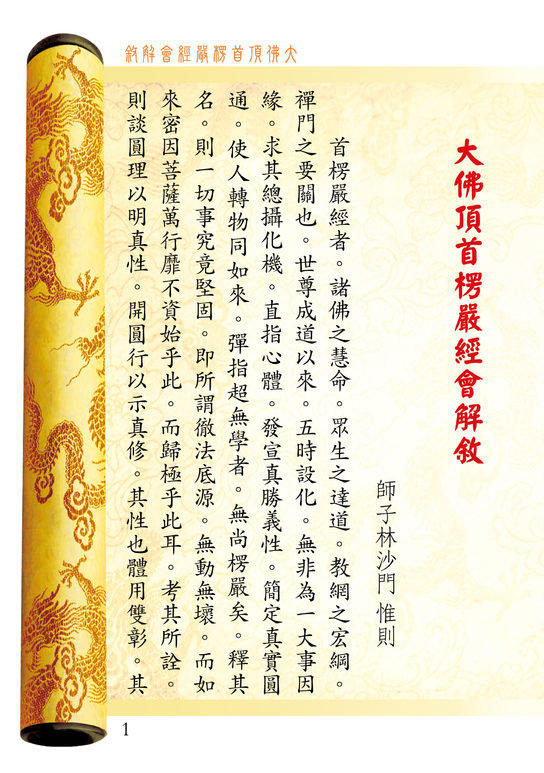 大佛頂首楞嚴經會解敘
大佛頂首楞嚴經會解敘
師子林沙門 惟則
首楞嚴經者。諸佛之慧命。眾生之達道。教網之宏綱。
禪門之要關也。世尊成道以來。五時設化。無非為一大事因
緣。求其總攝化機。直指心體。發宣真勝義性。簡定真實圓
通。使人轉物同如來。彈指超無學者。無尚楞嚴矣。釋其
名。則一切事究竟堅固。即所謂徹法底源。無動無壞。而如
來密因菩薩萬行靡不資始乎此。而歸極乎此耳。考其所詮。
則談圓理以明真性。開圓行以示真修。其性也體用雙彰。其
1